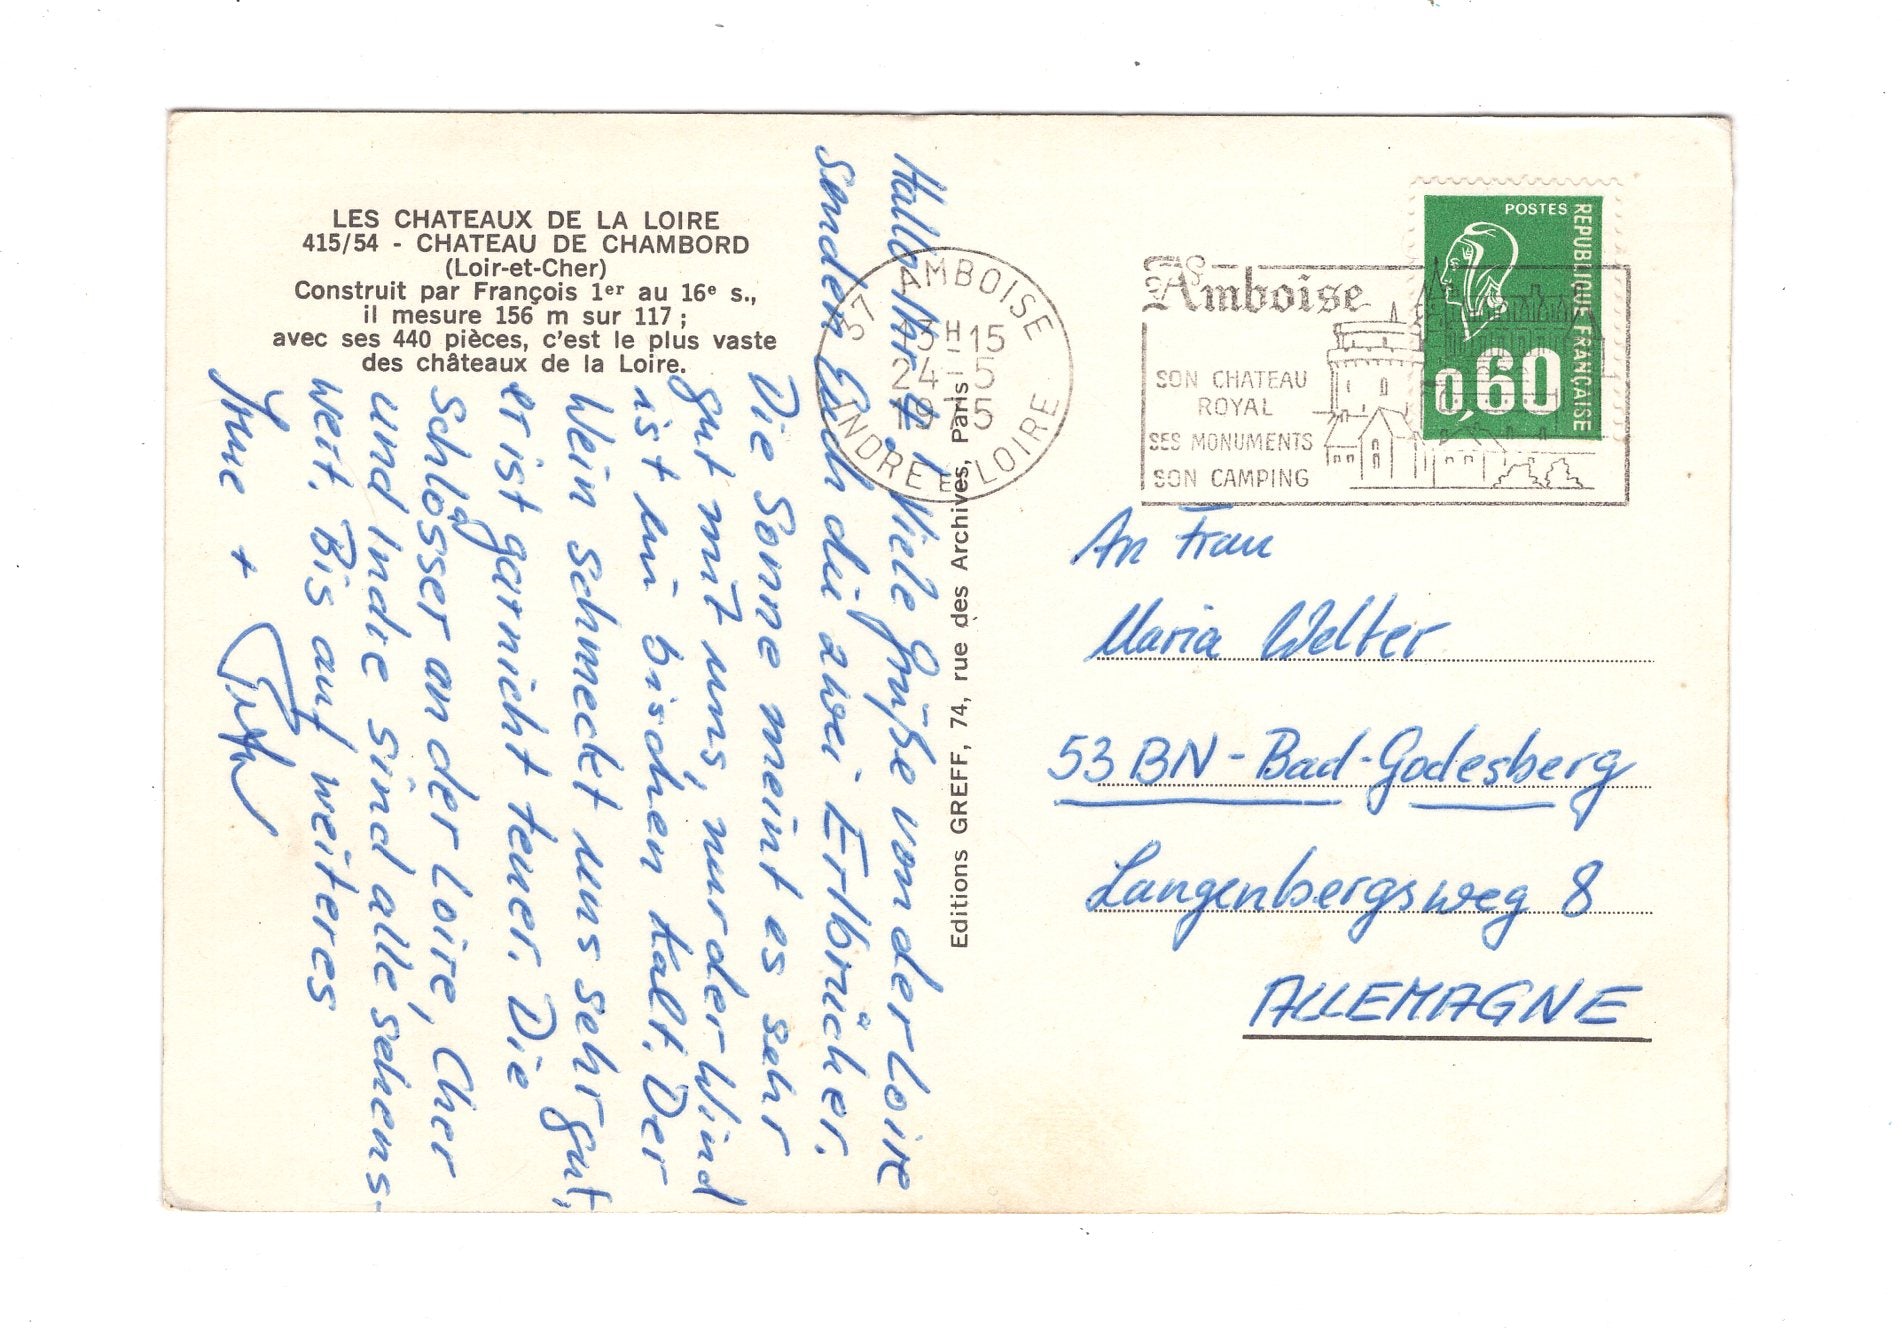 LES CHATEAUX DE LA LOIRE
415/54 - CHATEAU DE CHAMBORD
(Loir-et-Cher)
Construit par François 1er au 16e s.,
il mesure 156 m sur 117 ;
avec ses 440 pièces, c'est le plus vaste
des châteaux de la Loire.
Hallo Ihr 4! Viele Grüße von der Loire
senden Euch die zwei Ertbrücher.
Die Sonne meint es sehr
gut mit uns, nur der Wind
ist ein bischen kalt. Der
Wein schmeckt uns sehr gut,
er ist garnicht teuer. Die
Schlösser an der Loire, Cher
und Indre sind alle sehens-
weit. Bis auf weiteres
+
Editions GREFF, 74, rue des Archives, Paris
37 AMBOISE
13H15
24-5
1975
INDRE ET LOIRE
Amboise
SON CHATEAU
ROYAL
SES MONUMENTS
SON CAMPING
POSTES
REPUBLIQUE FRANCAISE
0,60
An Frau
Maria Welter
53 BN-Bad-Godesberg
Langenbergsweg 8
ALLEMAGNE